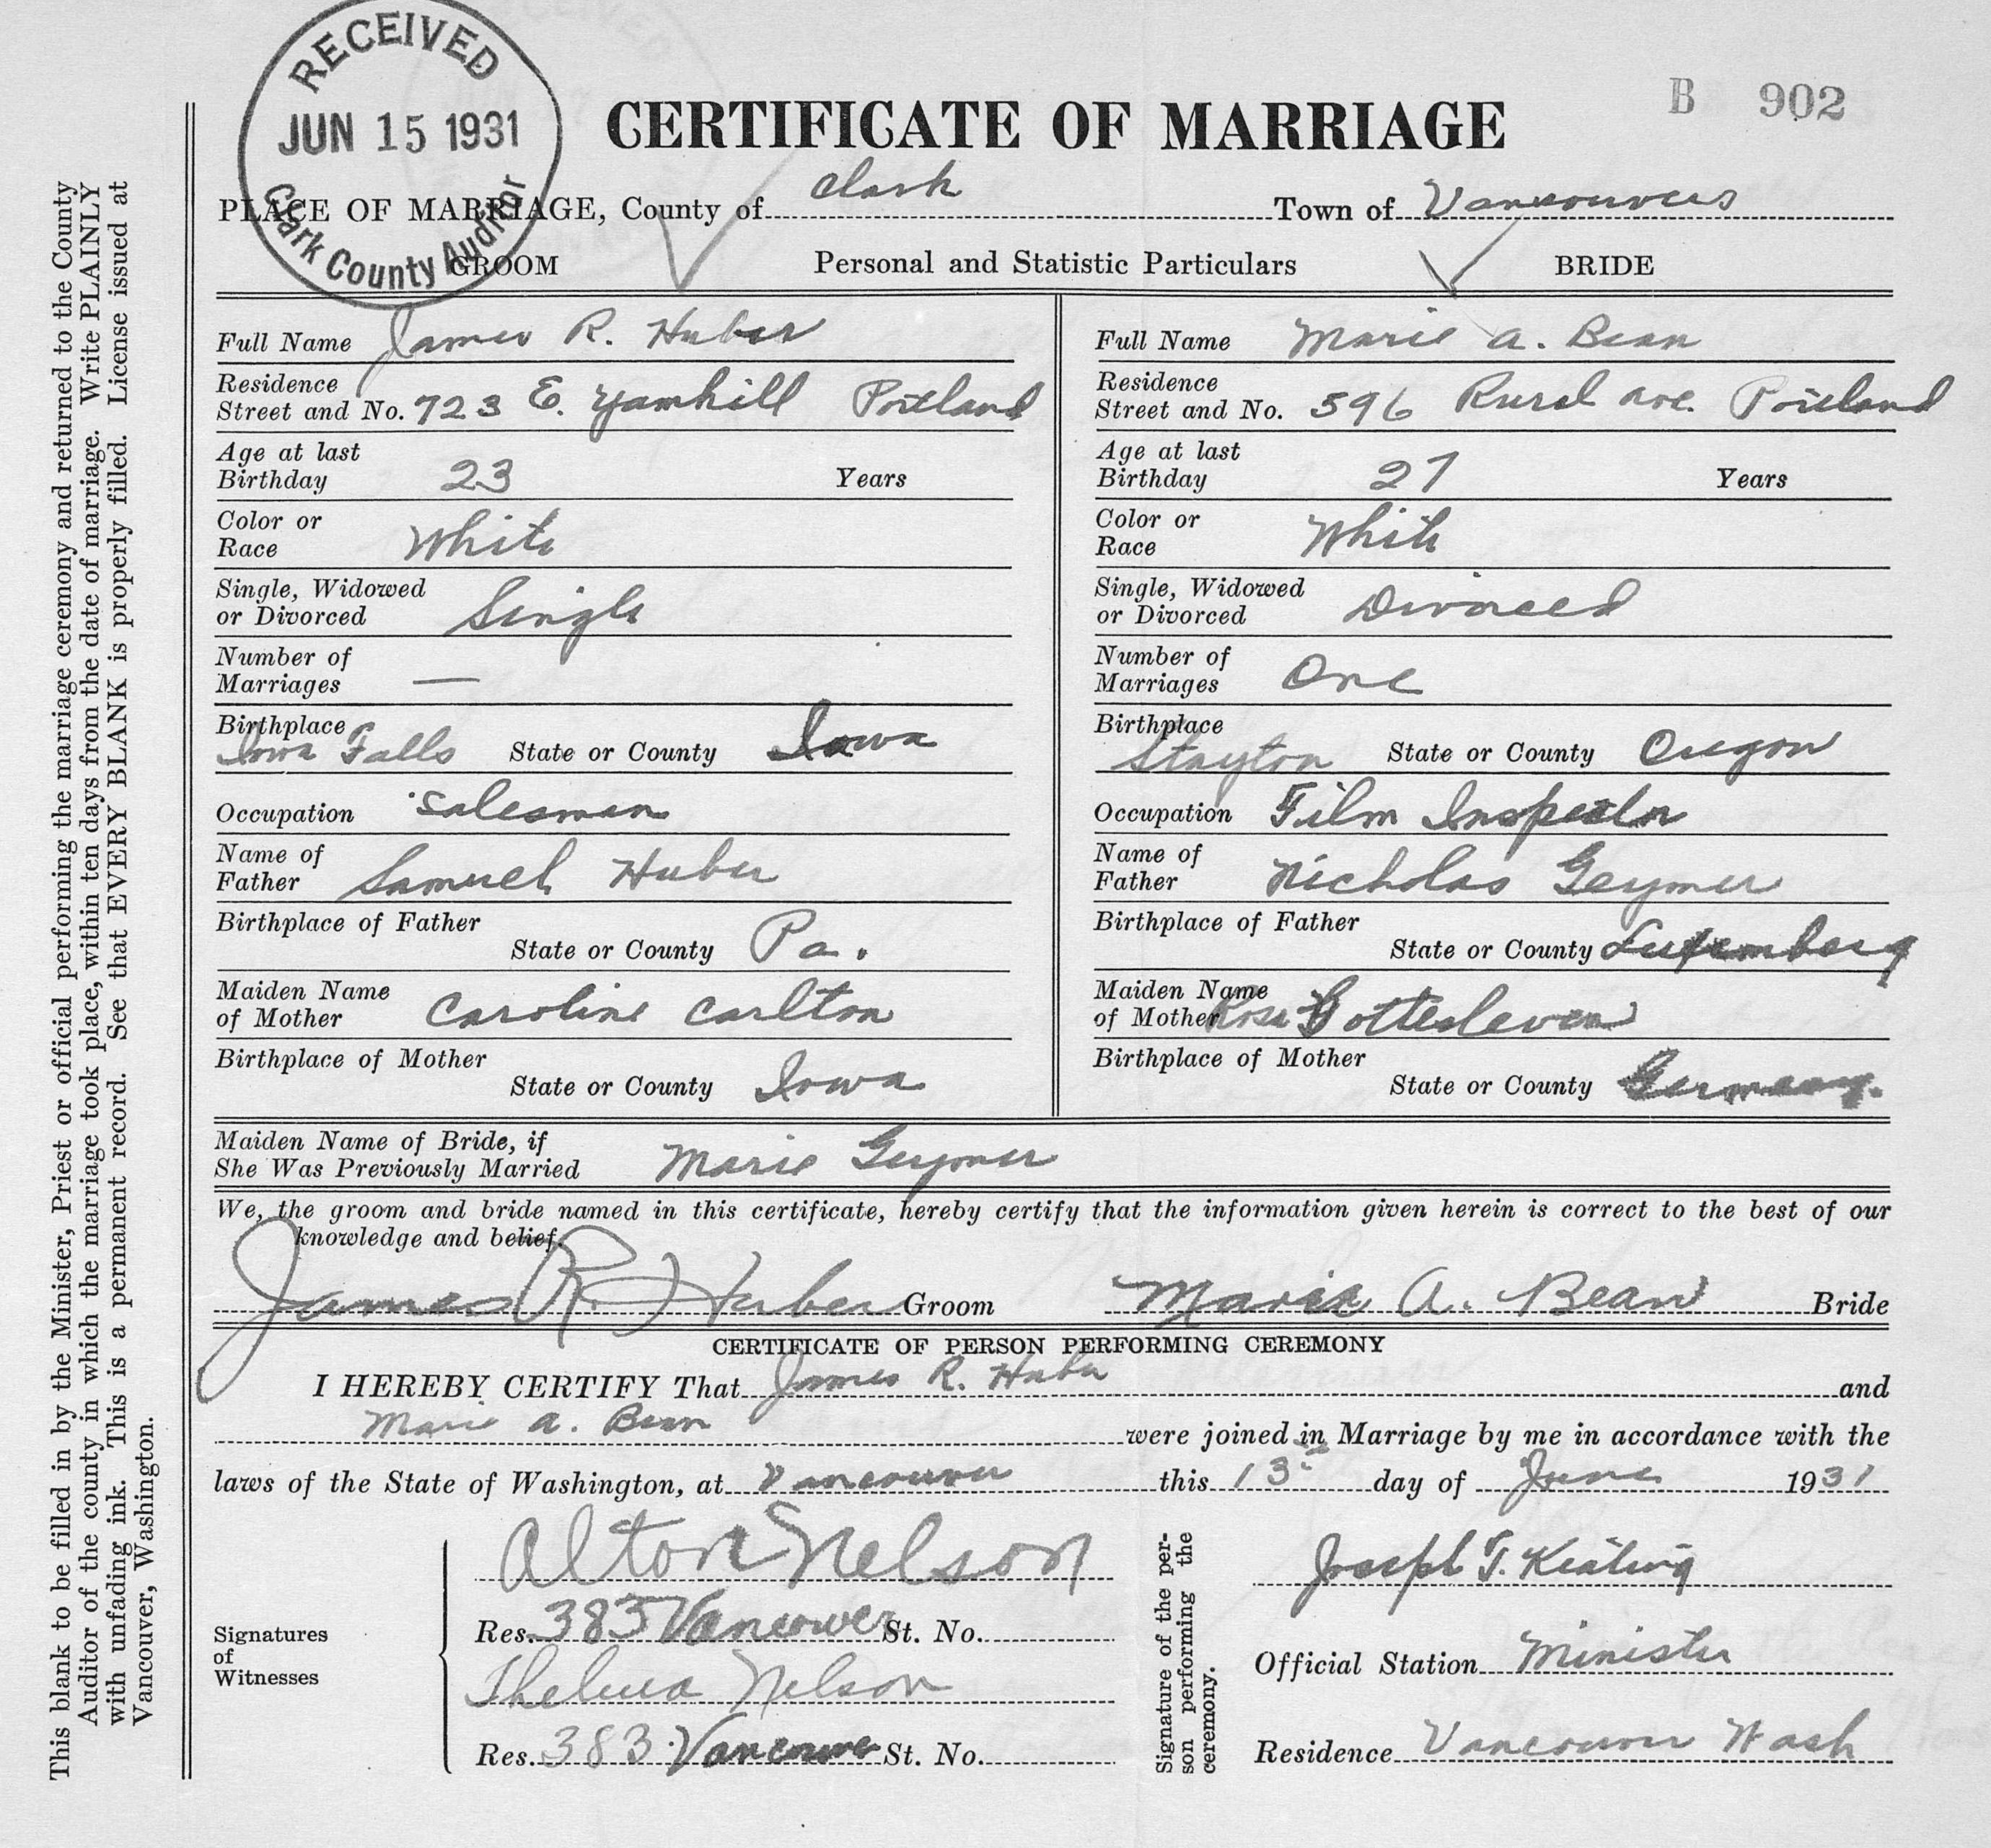 RECEIVED
JUN 15 1931
Clark County Auditor
B 902
CERTIFICATE OF MARRIAGE
PLACE OF MARRIAGE, County of Clark Town of Vancouver
GROOM Personal and Statistic Particulars BRIDE
Full Name James R. Huber
Residence
Street and No. 723 E. Yamhill Portland
Age at last
Birthday 23 Years
Color or
Race White
Single, Widowed
or Divorced Single
Number of
Marriages —
Birthplace
Iowa Falls State or County Iowa
Occupation Salesman
Name of
Father Samuel Huber
Birthplace of Father
State or County Pa.
Maiden Name
of Mother Caroline Carlton
Birthplace of Mother
State or County Iowa
Full Name Marie A. Bean
Residence
Street and No. 596 Rural Ave. Portland
Age at last
Birthday 27 Years
Color or
Race White
Single, Widowed
or Divorced Divorced
Number of
Marriages One
Birthplace
Stayton State or County Oregon
Occupation Film Inspector
Name of
Father Nicholas Geymer
Birthplace of Father
State or County Luxemberg
Maiden Name
of Mother Rosa Gottesleven
Birthplace of Mother
State or County Germany.
Maiden Name of Bride, if
She Was Previously Married Marie Geymer
We, the groom and bride named in this certificate, hereby certify that the information given herein is correct to the best of our
knowledge and belief.
James R. Huber Groom Marie A. Bean Bride
CERTIFICATE OF PERSON PERFORMING CEREMONY
I HEREBY CERTIFY That James R. Huber and
Marie A. Bean were joined in Marriage by me in accordance with the
laws of the State of Washington, at Vancouver this 13th day of June 1931
Signatures
of
Witnesses
Alton Nelson
Res. 383 Vancouver St. No.
Thelma Nelson
Res. 383 Vancouver St. No.
Signature of the per-
son performing the
ceremony.
Joseph T. Keating
Official Station Minister
Residence Vancouver Wash
This blank to be filled in by the Minister, Priest or official performing the marriage ceremony and returned to the County
Auditor of the county in which the marriage took place, within ten days from the date of marriage. Write PLAINLY
with unfading ink. This is a permanent record. See that EVERY BLANK is properly filled. License issued at
Vancouver, Washington.